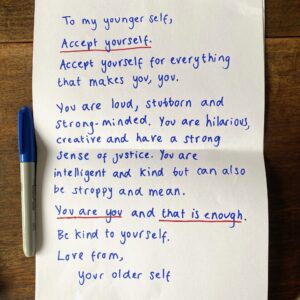 To my younger self,
Accept yourself.
Accept yourself for everything
that makes you, you.
You are loud, stubborn and
strong-minded. You are hilarious,
creative and have a strong
sense of justice. You are
intelligent and kind but can also
be stroppy and mean.
You are you and that is enough.
Be kind to yourself.
Love from,
your older self